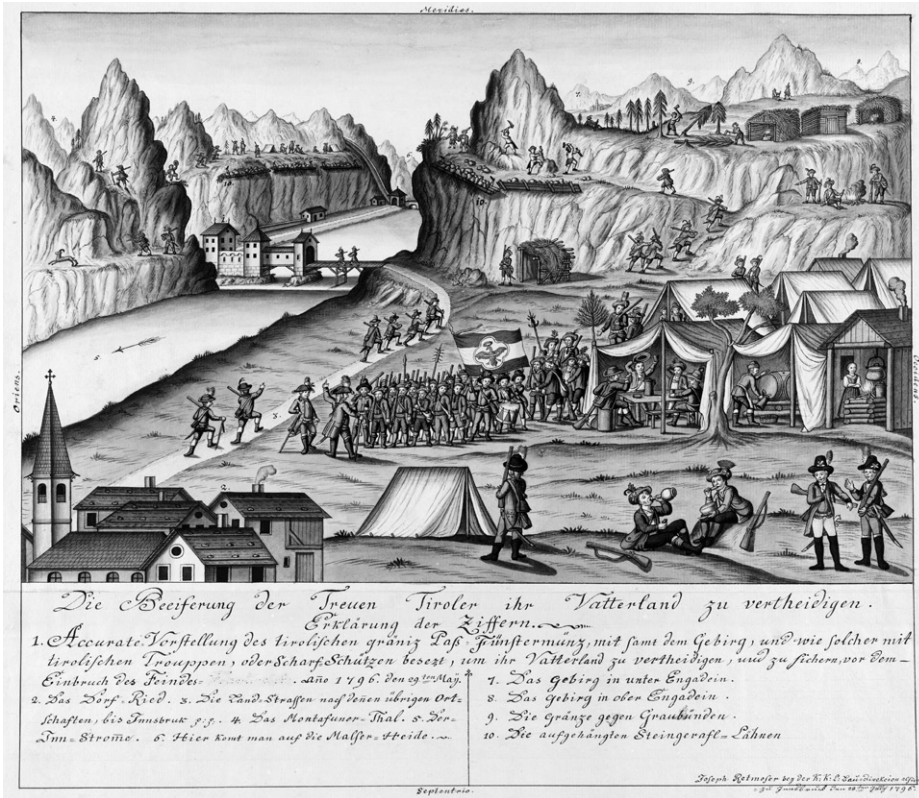 Meridies.
Oriens.
Die Beeiferung der Treuen Tiroler ihr Vatterland zu vertheidigen.
Erklärung der Ziffern.
1. Accurate Vorstellung des tirolischen gräniz Paß-Fünstermünz, mit samt dem Gebirg, und wie solcher mit
tirolischen Trouppen, oder Scharf-Schützen besezt, um ihr Vatterland zu vertheidigen, und zu sichern, vor dem-
Einbruch des Feindes- . Año 1796. den 29ten Maÿ.
2. Das Dorf-Ried. 3. Die Land-Strassen nach denen übrigen Ort-
schaften, bis Innsbruk p:p. 4. Das Montafuner-Thal. 5. Der-
Inn-Strome. 6. Hier komt man auf die Malser-Heide.
7. Das Gebirg in unter Engadein.
8. Das Gebirg in ober Engadein.
9. Die Gränze gegen Graubünden.
10. Die aufgehängten Steingerafl-Lähnen
Joseph Retmoser beÿ der K:K:
zu Innsbruck den July 1796.
Septentrio.